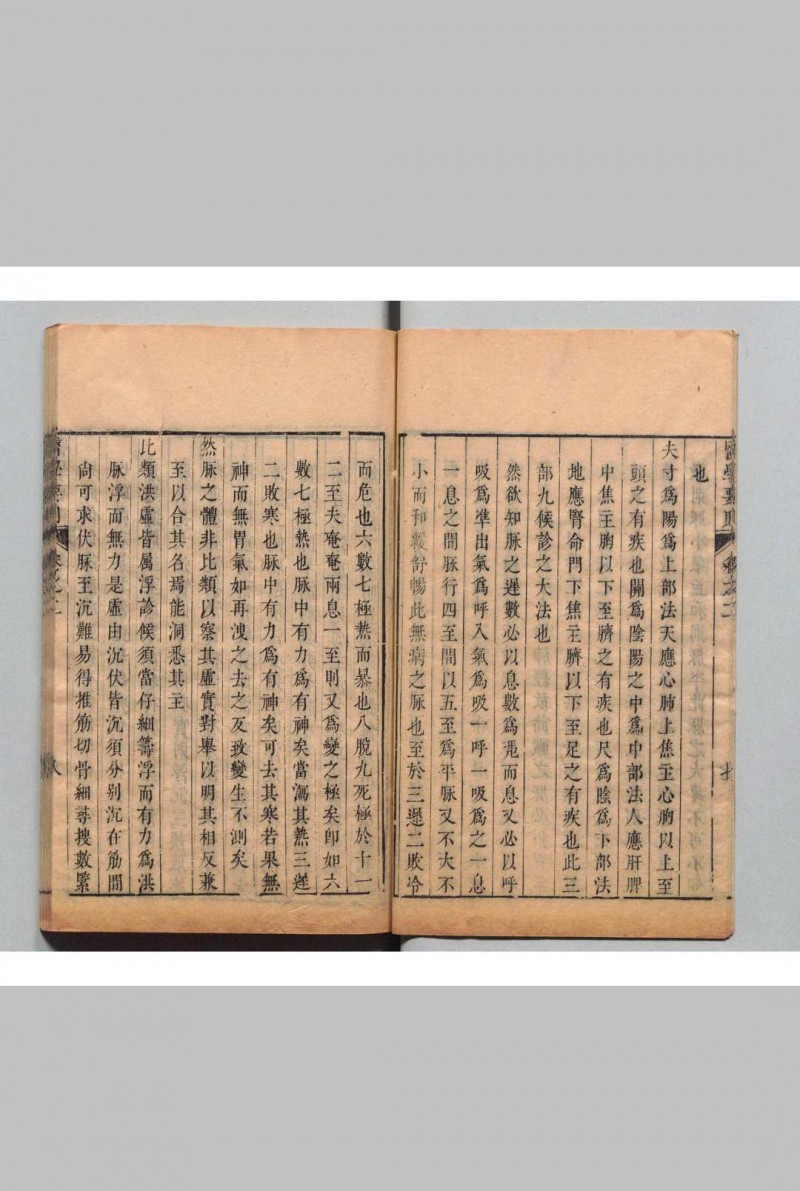 醫學要則 卷之二
也
夫寸爲陽爲上部法天應心肺上焦主心胸以上至
頭之有疾也關爲陰陽之中爲中部法人應肝脾
中焦主胸以下至臍之有疾也尺爲陰爲下部法
地應腎命門下焦主臍以下至足之有疾也此三
部九候診之大法也
然欲知脉之遲數必以息數爲凖而息又必以呼
吸爲凖出氣爲呼入氣爲吸一呼一吸爲之一息
一息之間脉行四至間以五至爲平脉又不大不
小而和緩舒暢此無病之脉也至於三遲二敗冷
而危也六數七極热而暴也八脫九死極於十一
二至夫奄奄兩息一至則又爲變之極矣卽如六
數七極熱也脉中有力爲有神矣當瀉其熱三遲
二敗寒也脉中有力爲有神矣可去其寒若果無
神而無胃氣如再洩之去之反致變生不測矣
然脉之體非比類以察其虛實對舉以明其相反兼
至以合其名焉能洞悉其主
比類洪虛皆属浮診候須當仔細籌浮而有力爲洪
脉浮而無力是虛由沉伏皆沉須分别沉在筋間
尙可求伏脉至沉難易得推筋切骨細尋搜數緊
醫學要則 卷之二 八